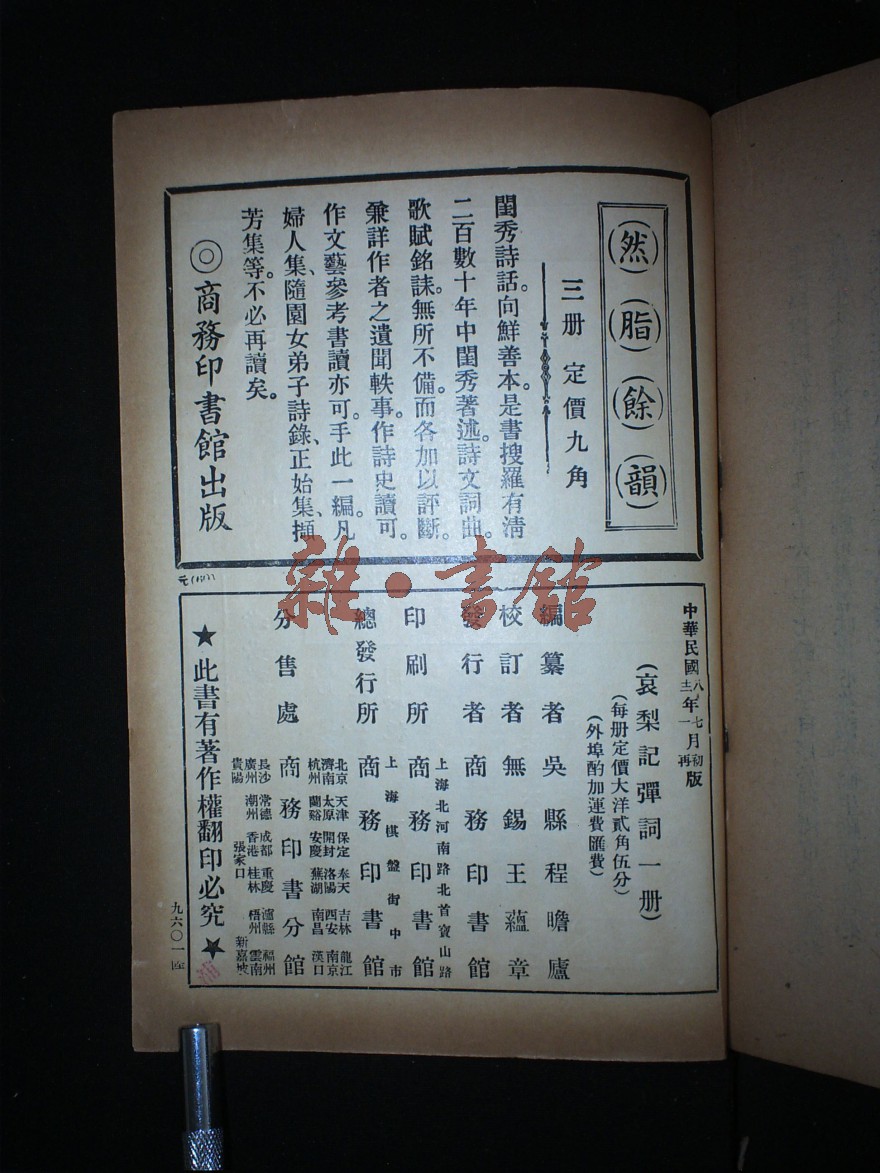 然脂餘韻
三册 定價九角
閨秀詩話。向鮮善本。是書搜羅有淸
二百數十年中閨秀著述。詩文詞曲。
歌賦銘誄。無所不備。而各加以評斷。
兼詳作者之遺聞軼事。作詩史讀可。
作文藝參考書讀亦可。手此一編。凡
婦人集、隨園女弟子詩錄、正始集、擷
芳集等。不必再讀矣。
◎商務印書館出版
雜·書館
中華民國八年七月初版
十二年一月再版
(哀梨記彈詞一册)
(每册定價大洋貳角伍分)
(外埠酌加運費匯費)
編纂者 吳縣程瞻廬
校訂者 無錫王蘊章
發行者 商務印書館
上海北河南路北首寶山路
印刷所 商務印書館
上海棋盤街中市
總發行所 商務印書館
北京 天津 保定 奉天 吉林 龍江
濟南 太原 開封 洛陽 西安 南京
杭州 蘭谿 安慶 蕪湖 南昌 漢口
分售處 商務印書分館
長沙 常德 成都 重慶 瀘縣 福州
廣州 潮州 香港 桂林 梧州 雲南
貴陽 張家口 新嘉坡
★此書有著作權翻印必究★
九六〇一